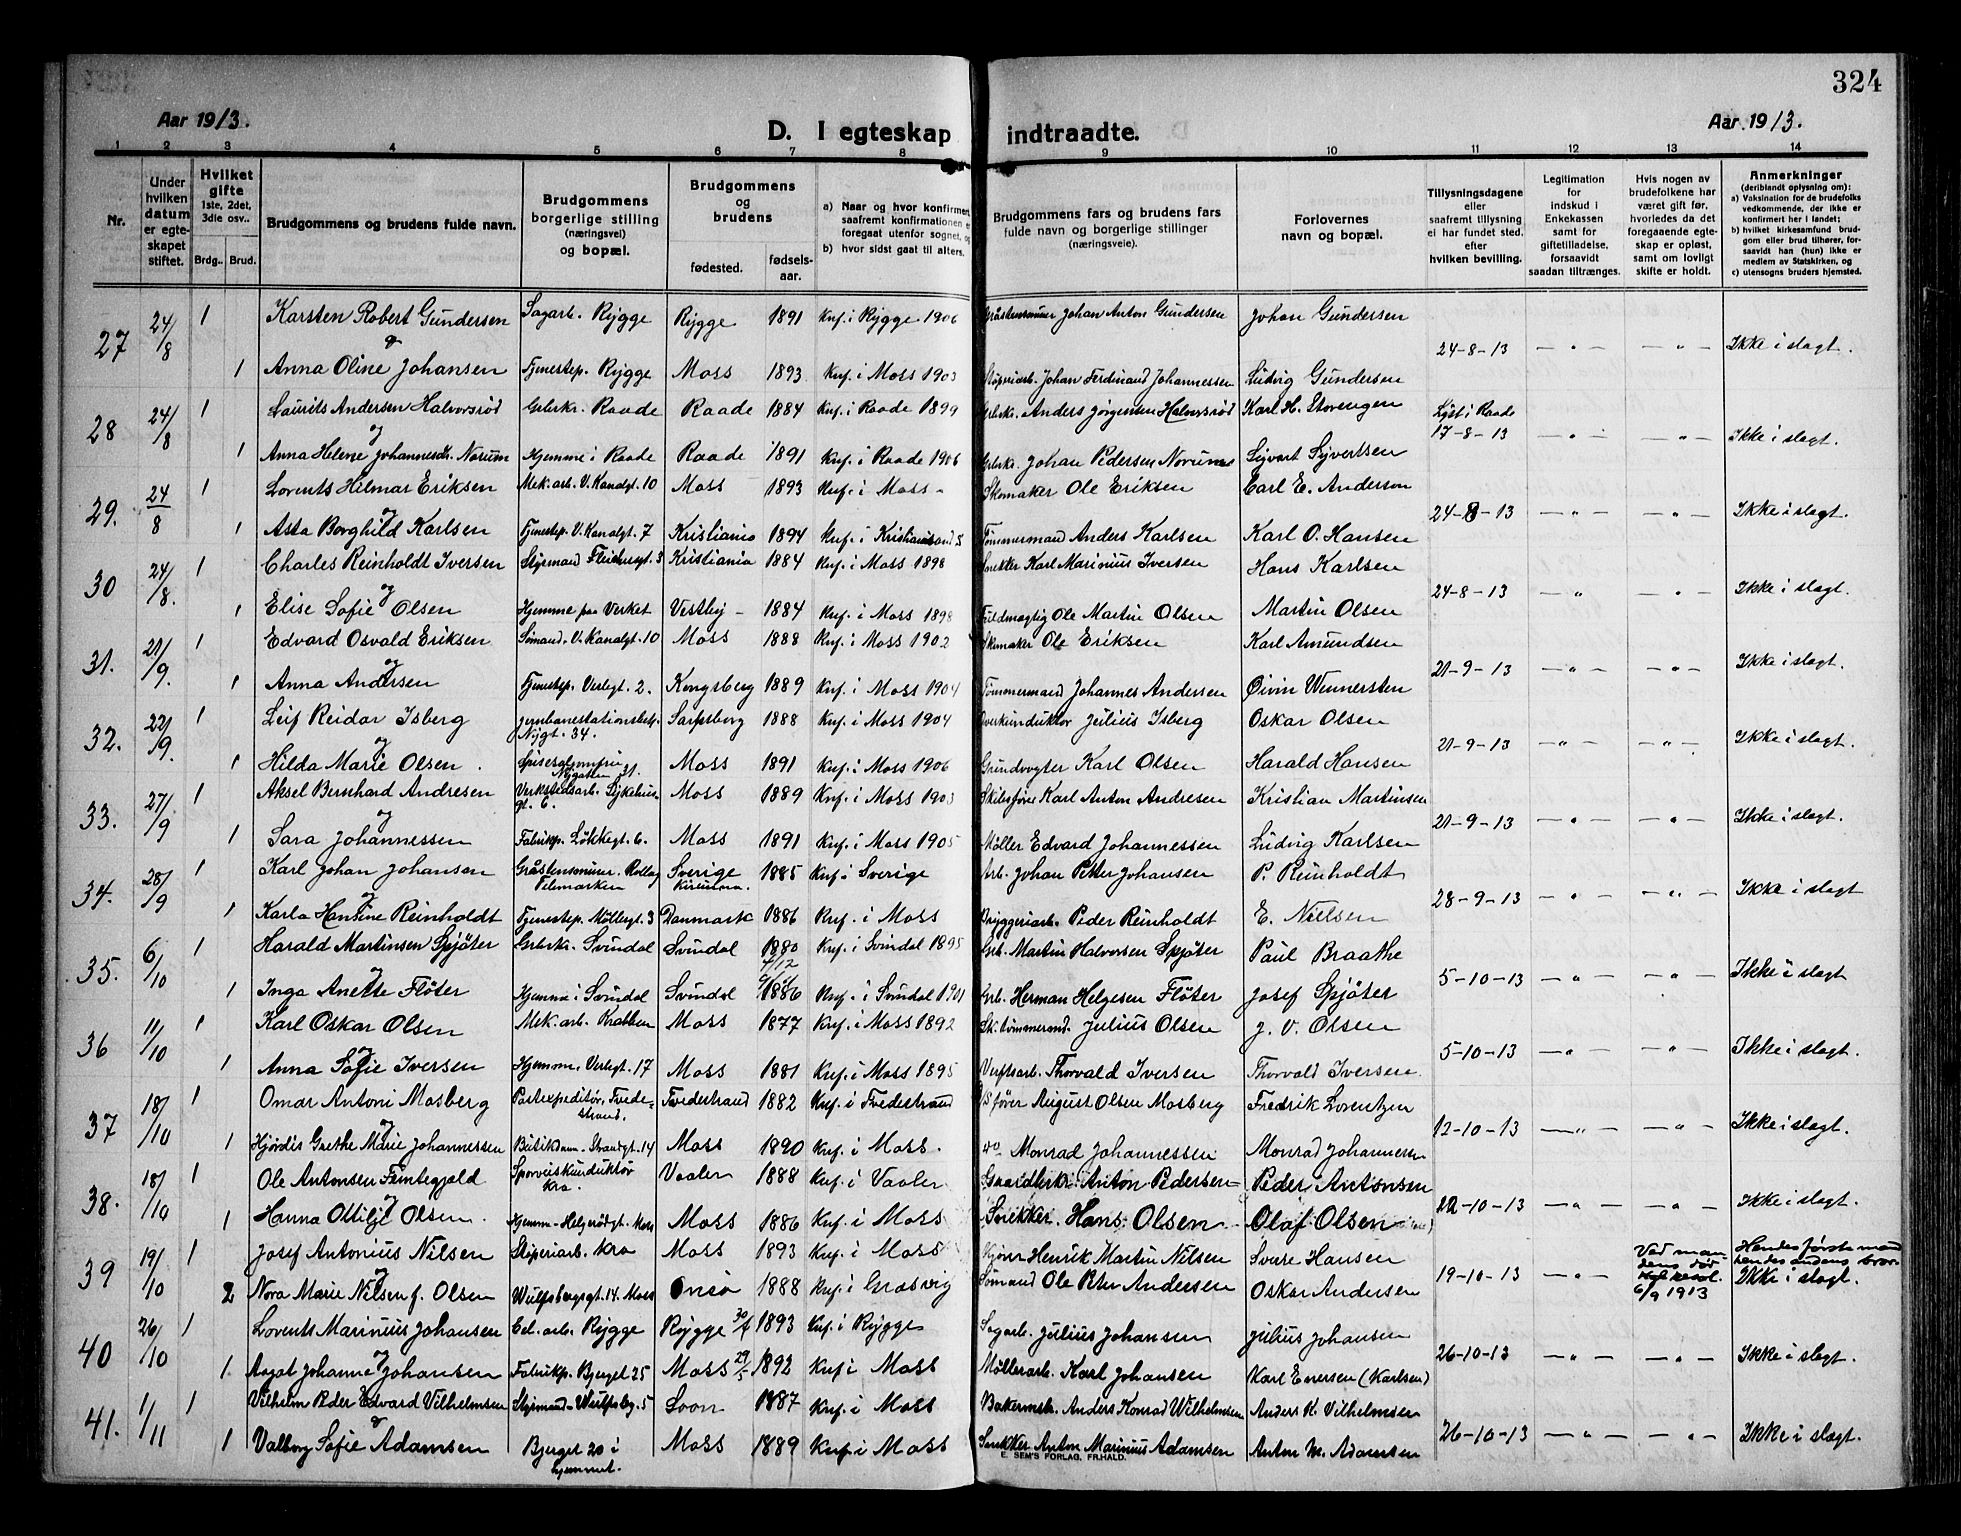 324
Aar 1913.
D. I egteskap indtraadte.
Aar 1913.
1 2 3 4 5 6 7 8 9 10 11 12 13 14
Nr.
Under hvilken datum er egteskapet stiftet.
Hvilket gifte 1ste, 2det, 3die osv..
Brdg.. Brud.
Brudgommens og brudens fulde navn.
Brudgommens borgerlige stilling (næringsvei) og bopæl.
Brudgommens og brudens
fødested.
fødselsaar.
a) Naar og hvor konfirmert, saafremt konfirmationen er foregaat utenfor sognet, og
b) hvor sidst gaat til alters.
Brudgommens fars og brudens fars fulde navn og borgerlige stillinger (næringsveie).
Forlovernes navn og bopæl.
Tillysningsdagene eller saafremt tillysning ei har fundet sted, efter hvilken bevilling.
Legitimation for indskud i Enkekassen samt for giftetilladelse, forsaavidt saadan tiltrænges.
Hvis nogen av brudefolkene har været gift før, hvorledes da det foregaaende egteskap er opløst, samt om lovligt skifte er holdt.
Anmerkninger (deriblandt oplysning om):
a) Vaksination for de brudefolks vedkommende, der ikke er konfirmert her i landet;
b) hvilket kirkesamfund brudgom eller brud tilhører, forsaavidt han (hun) ikke er medlem av Statskirken, og
c) utensogns bruders hjemsted.
27 24/8 1 Karsten Robert Gundersen Sagarb. Rygge Rygge 1891 Knf. i Rygge 1906 Gråstensminer Johan Anton Gundersen Johan Gundersen
og 24-8-13 — „ — — „ — Ikke i slegt.
1 Anna Oline Johansen Tjenestep. Rygge Moss 1893 Knf. i Moss 1903 Johan Ferdinand Johannessen Ludvig Gundersen
28 24/8 1 Laurits Andersen Halvorsrød Grbrkr. Raade Raade 1884 Knf. i Raade 1899 Grbrkr. Anders Jørgensen Halvorsrød Karl H. Storengen
og Lyst i Raade 17-8-13 — „ — — „ — Ikke i slegt.
1 Anna Helene Johannesdr. Norum Hjemme i Raade Raade 1891 Knf. i Raade 1906 Grbrkr. Johan Pedersen Norum Sigvart Syvertsen
29. 24/8 1 Lorents Hilmar Eriksen Mek. arb. V. Kanalgt. 10 Moss 1893 Knf. i Moss - Skomaker Ole Eriksen Carl E. Anderson
og 24-8-13 — „ — — „ — Ikke i slegt.
1 Asta Borghild Karlsen Tjenestep. V. Kanalgt. 7 Kristiania 1894 Knf. i Kristiansand S Tømmermand Anders Karlsen Karl O. Hansen
30 24/8. 1 Charles Reinholdt Iversen Styrmand 3 Kristiania 1884 Knf. i Moss 1898 Snekker Karl Marinius Iversen Hans Karlsen
og 24-8-13 — „ — — „ — Ikke i slegt.
1 Elise Sofie Olsen Hjemme paa Verket Vestby - 1884 Knf. i Moss 1898 Fuldmægtig Ole Martin Olsen Martin Olsen
31. 21/9. 1 Edvard Osvald Eriksen Sømand. V. Kanalgt. 10 Moss 1888 Knf. i Moss 1902 Skomaker Ole Eriksen Karl Amundsen
og 21-9-13 — „ — — „ — Ikke i slegt.
1 Anna Andersen Tjenestep. Verlegt. 2. Kongsberg 1889 Knf. i Moss 1904 Tømmermand Johannes Andersen Øivin Wennersten
32. 22/9. 1 Leif Reidar Isberg Jernbanestationsbetj. Nygt. 34. Sarpsborg 1888 Knf. i Moss 1904 Overkunduktør Julius Isberg Oskar Olsen
og 21-9-13 — „ — — „ — Ikke i slegt.
1 Hilda Marie Olsen. Moss 1891 Knf. i Moss 1906 Grundvogter Karl Olsen Harald Hansen
33. 27/9 1 Aksel Bernhard Andresen Verkstedsarb. Sykehusgt. 6. Moss 1889 Knf. i Moss 1903 Skibsfører Karl Anton Andresen Kristian Martinsen
og 21-9-13 — „ — — „ — Ikke i slegt.
1 Sara Johannessen Fabrikp. Løkkegt. 6. Moss 1891 Knf. i Moss 1905 Møller Edvard Johannessen Ludvig Karlsen
34. 28/9 1 Karl Johan Johansen Gråstensminer. Rollag Telemarken Sverige 1885 Knf. i Sverige Arb. Johan Petter Johansen P. Reinholdt
og 28-9-13 — „ — — „ — Ikke i slegt
1 Karla Hansine Reinholdt Tjenestep. Møllegt. 3 Danmark 1886 Knf. i Moss Bryggeriarb. Peder Reinholdt E. Nielsen
35. 6/10 1 Harald Martinsen Spjøter Grbrkr. Svindal Svindal 1880 4/12 Knf. i Svindal 1895 Grb. Martin Halvorsen Spjøter Paul Braathe
og 5-10-13 — „ — — „ — Ikke i slegt
1 Inga Anette Fløter Hjemme i Svindal Svindal 1886 Knf. i Svindal 1901 Grb. Herman Helgesen Fløter Josef Spjøter
36 11/10 1 Karl Oskar Olsen Mek. arb. Krabben Moss 1877 Knf. i Moss 1892 Sk. tømmermd. Julius Olsen J. V. Olsen
og 5-10-13 — „ — — „ — Ikke i slegt.
1 Anna Sofie Iversen Hjemme, Verlegt. 17 Moss 1881 Knf. i Moss 1895 Verftsarb. Thorvald Iversen Thorvald Iversen
37 18/10 1 Omar Antoni Mosberg Postexpeditør, Tvedestrand. Tvedestrand 1882 Knf. i Tvedestrand August Olsen Mosberg Fredrik Lorentzen
og 12-10-13 — „ — — „ — Ikke i slegt.
1 Hjørdis Grethe Marie Johannessen Butikdam. Strandgt. 14 Moss 1890 Knf. i Moss. Monrad Johannessen Monrad Johannessen
38. 18/10 1 Ole Antonsen Femtegjeld Sporveiskunduktør Kra. Vaaler 1888 Knf. i Vaaler Gaardbrk. Anton Pedersen Peder Antonsen
og 12-10-13 — „ — — „ — Ikke i slegt.
1 Hanna Ottilje Olsen. Hjemm - Helgerødgt. Moss Moss 1886 Knf. i Moss Snekker. Hans Olsen Olaf Olsen
39 19/10 1 Josef Antonius Nilsen Støperiarb. Kra Moss 1893 Knf. i Moss Henrik Martin Nilsen Sverre Hansen
og 19-10-13 — „ — Ved mandens død 6/9 1913 Hendes første mand hendes andens bror. Ikke i slegt.
2 Nora Marie Nilsen f. Olsen Wulfsbergsgt. 14. Moss Onsø 1888 Knf. i Græsvig Sømand Ole Peter Andersen Oskar Andersen
40 26/10 1 Lorents Marinius Johansen Cel. arb. Rygge Rygge 1893 Knf. i Rygge Sagarb. Julius Johansen Julius Johansen
og 26-10-13 — „ — — „ — Ikke i slegt.
1 Aagot Johanne Johansen Fabrikp. Bjerget 25 Moss 29/5 1892 Knf i Moss Møllerarb. Karl Johansen Karl Enersen (Karlsen)
41. 1/11 1 Vilhelm Peder Edvard Vilhelmsen Styrmand - Wulfsbg. 5 Soon 1887 Knf. i Moss Bakermstr. Anders Konrad Wilhelmsen Anders K. Vilhelmsen
og 26-10-13 — „ — — „ — Ikke i slegt.
1 Valborg Sofie Adamsen Bjerget 20 i hjemmet. Moss 1889 Knf. i Moss Snekker Anton Marinius Adamsen Anton M. Adamsen
E. SEM'S FORLAG, FR.HALD.